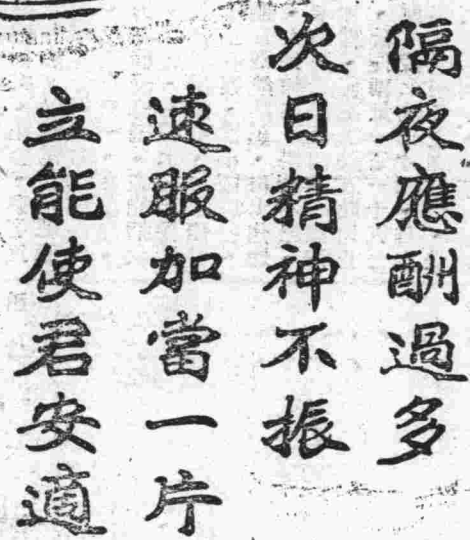 隔夜應酬過多
次日精神不振
速服加當一片
立能使君安適